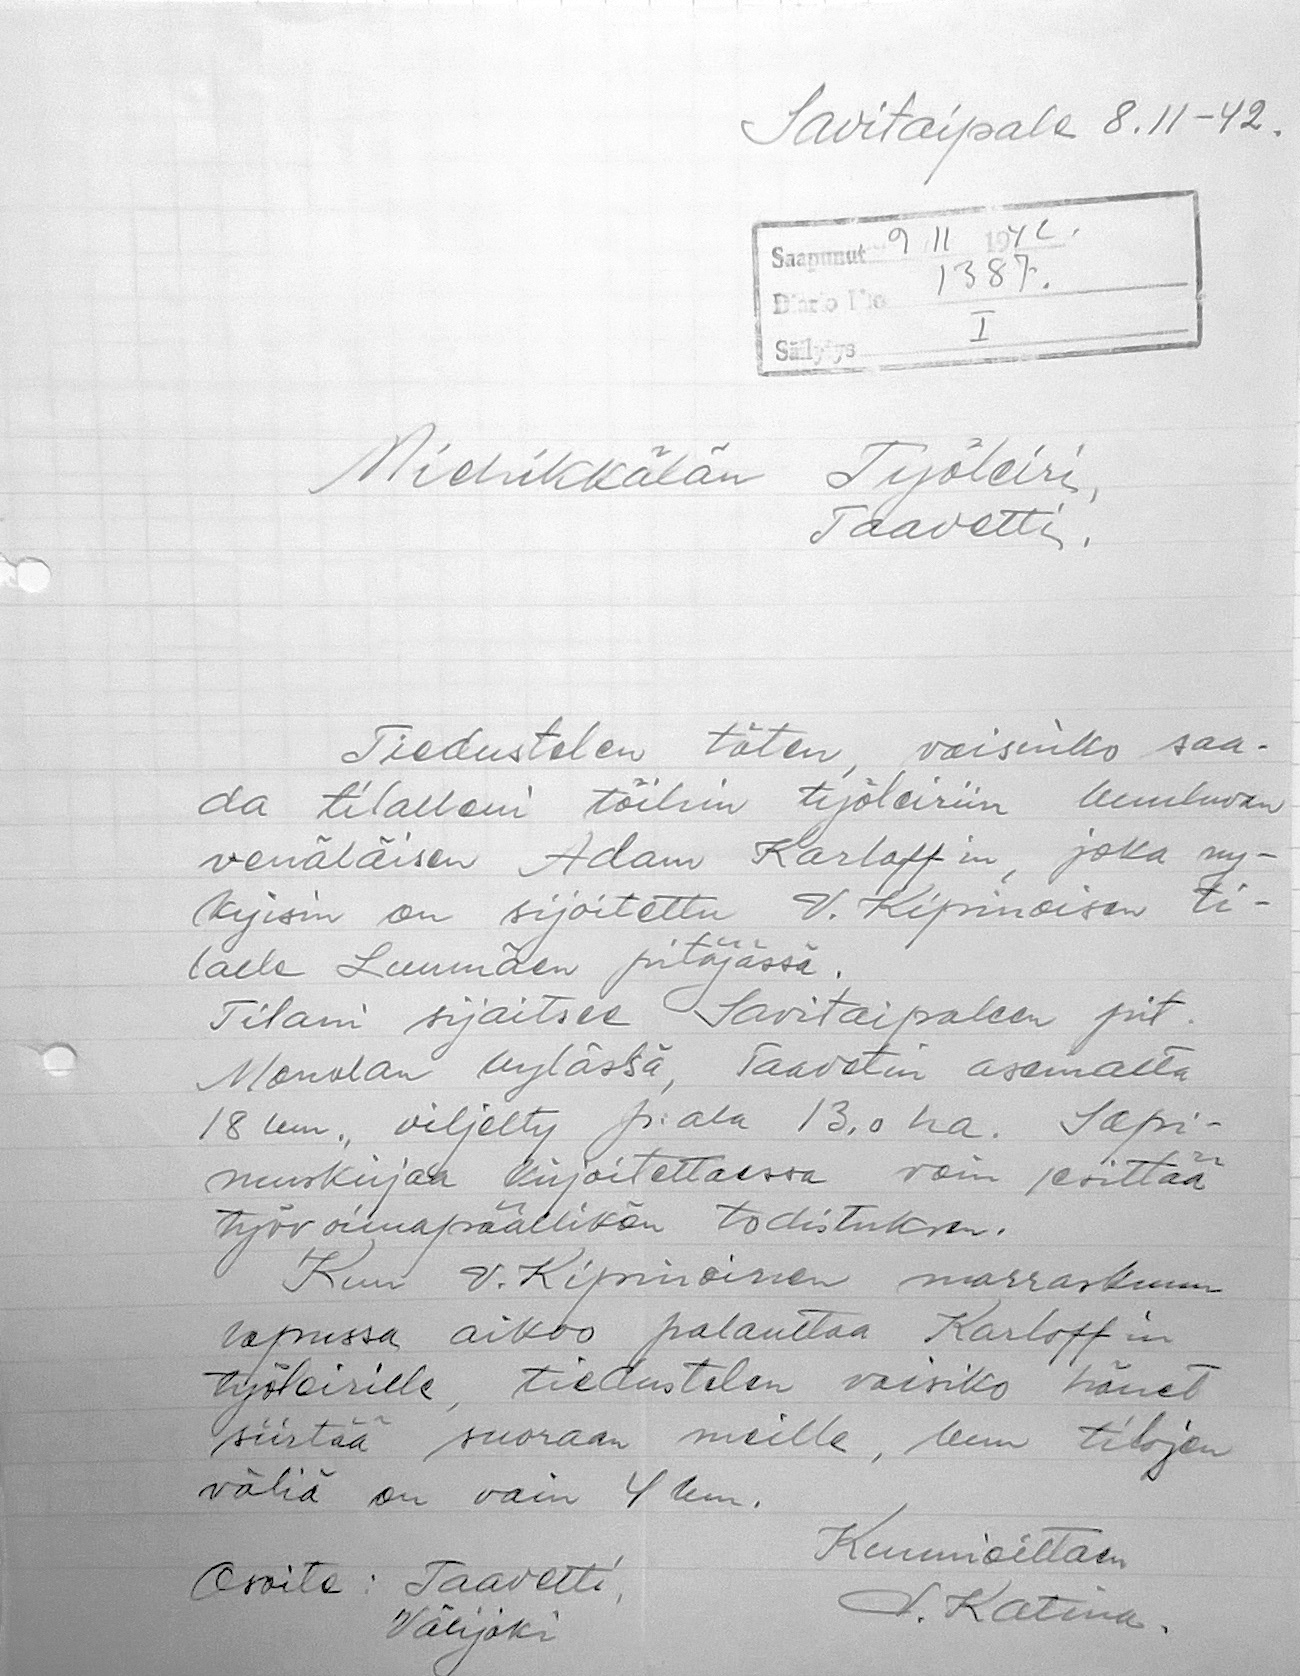 Savitaipale 8.11-42.
Saapunut 9 11 1942.
Diario N:o 1387.
Säilytys I
Miehikkälän Työleiri,
Taavetti.
Tiedustelen täten, voisinko saa-
da tilalleni töihin työleiriin kuuluvan
venäläisen Adam Karloffin, joka ny-
kyisin on sijoitettu V. Kiprinoisen ti-
lalle Luumäen pitäjässä.
Tilani sijaitsee Savitaipaleen pit.
Monolan kylässä, Taavetin asemalta
18 km., viljelty p:ala 13,0 ha. Sopi-
muskirjaa kirjoitettaessa voin esittää
työvoimapäällikön todistuksen.
Kun V. Kiprinoinen marraskuun
lopussa aikoo palauttaa Karloffin
työleirille, tiedustelen voisiko hänet
siirtää suoraan meille, kun tilojen
väliä on vain 4 km.
Kunnioittaen
Osoite: Taavetti,
Välijoki
Katina.